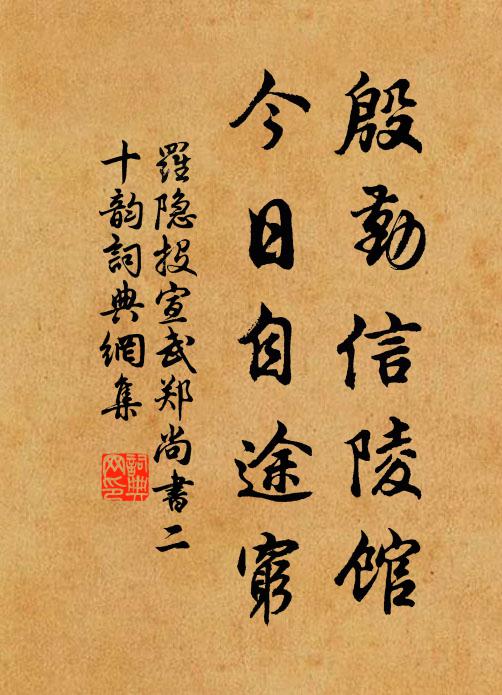 殷勤信陵館
今日自途窮
羅隐投宣武郑尚書二
十韵詞典網集
詞典网印